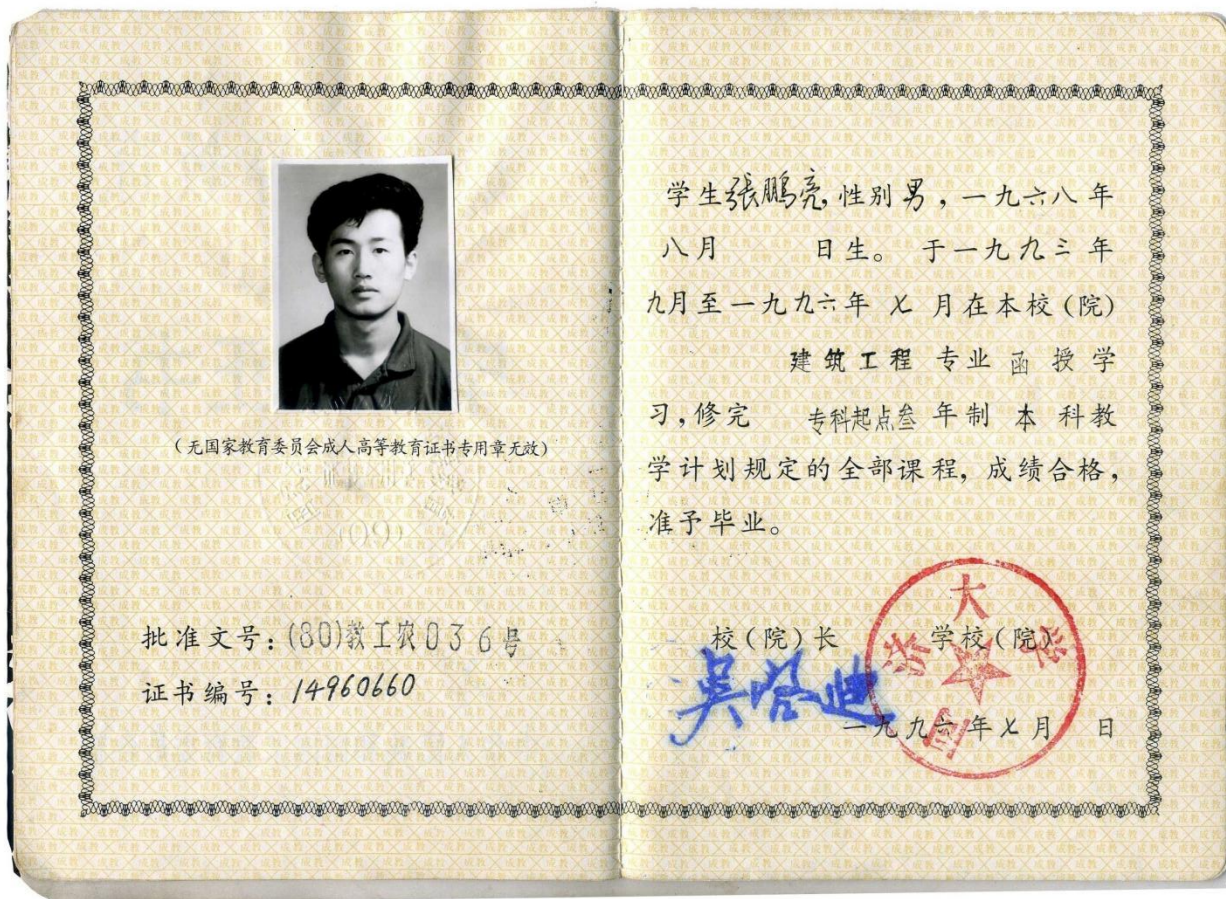 (无国家教育委员会成人高等教育证书专用章无效)
批准文号:(80)教工农036号
证书编号:14960660
学生張鵬亮,性别男,一九六八年
八月 日生。于一九九三年
九月至一九九六年 七 月在本校(院)
建筑工程 专业 函 授 学
习,修完 专科起点叁 年制 本 科教
学计划规定的全部课程,成绩合格,
准予毕业。
校(院)长 学校(院)
吴启迪
同济大学
一九九六年七月 日